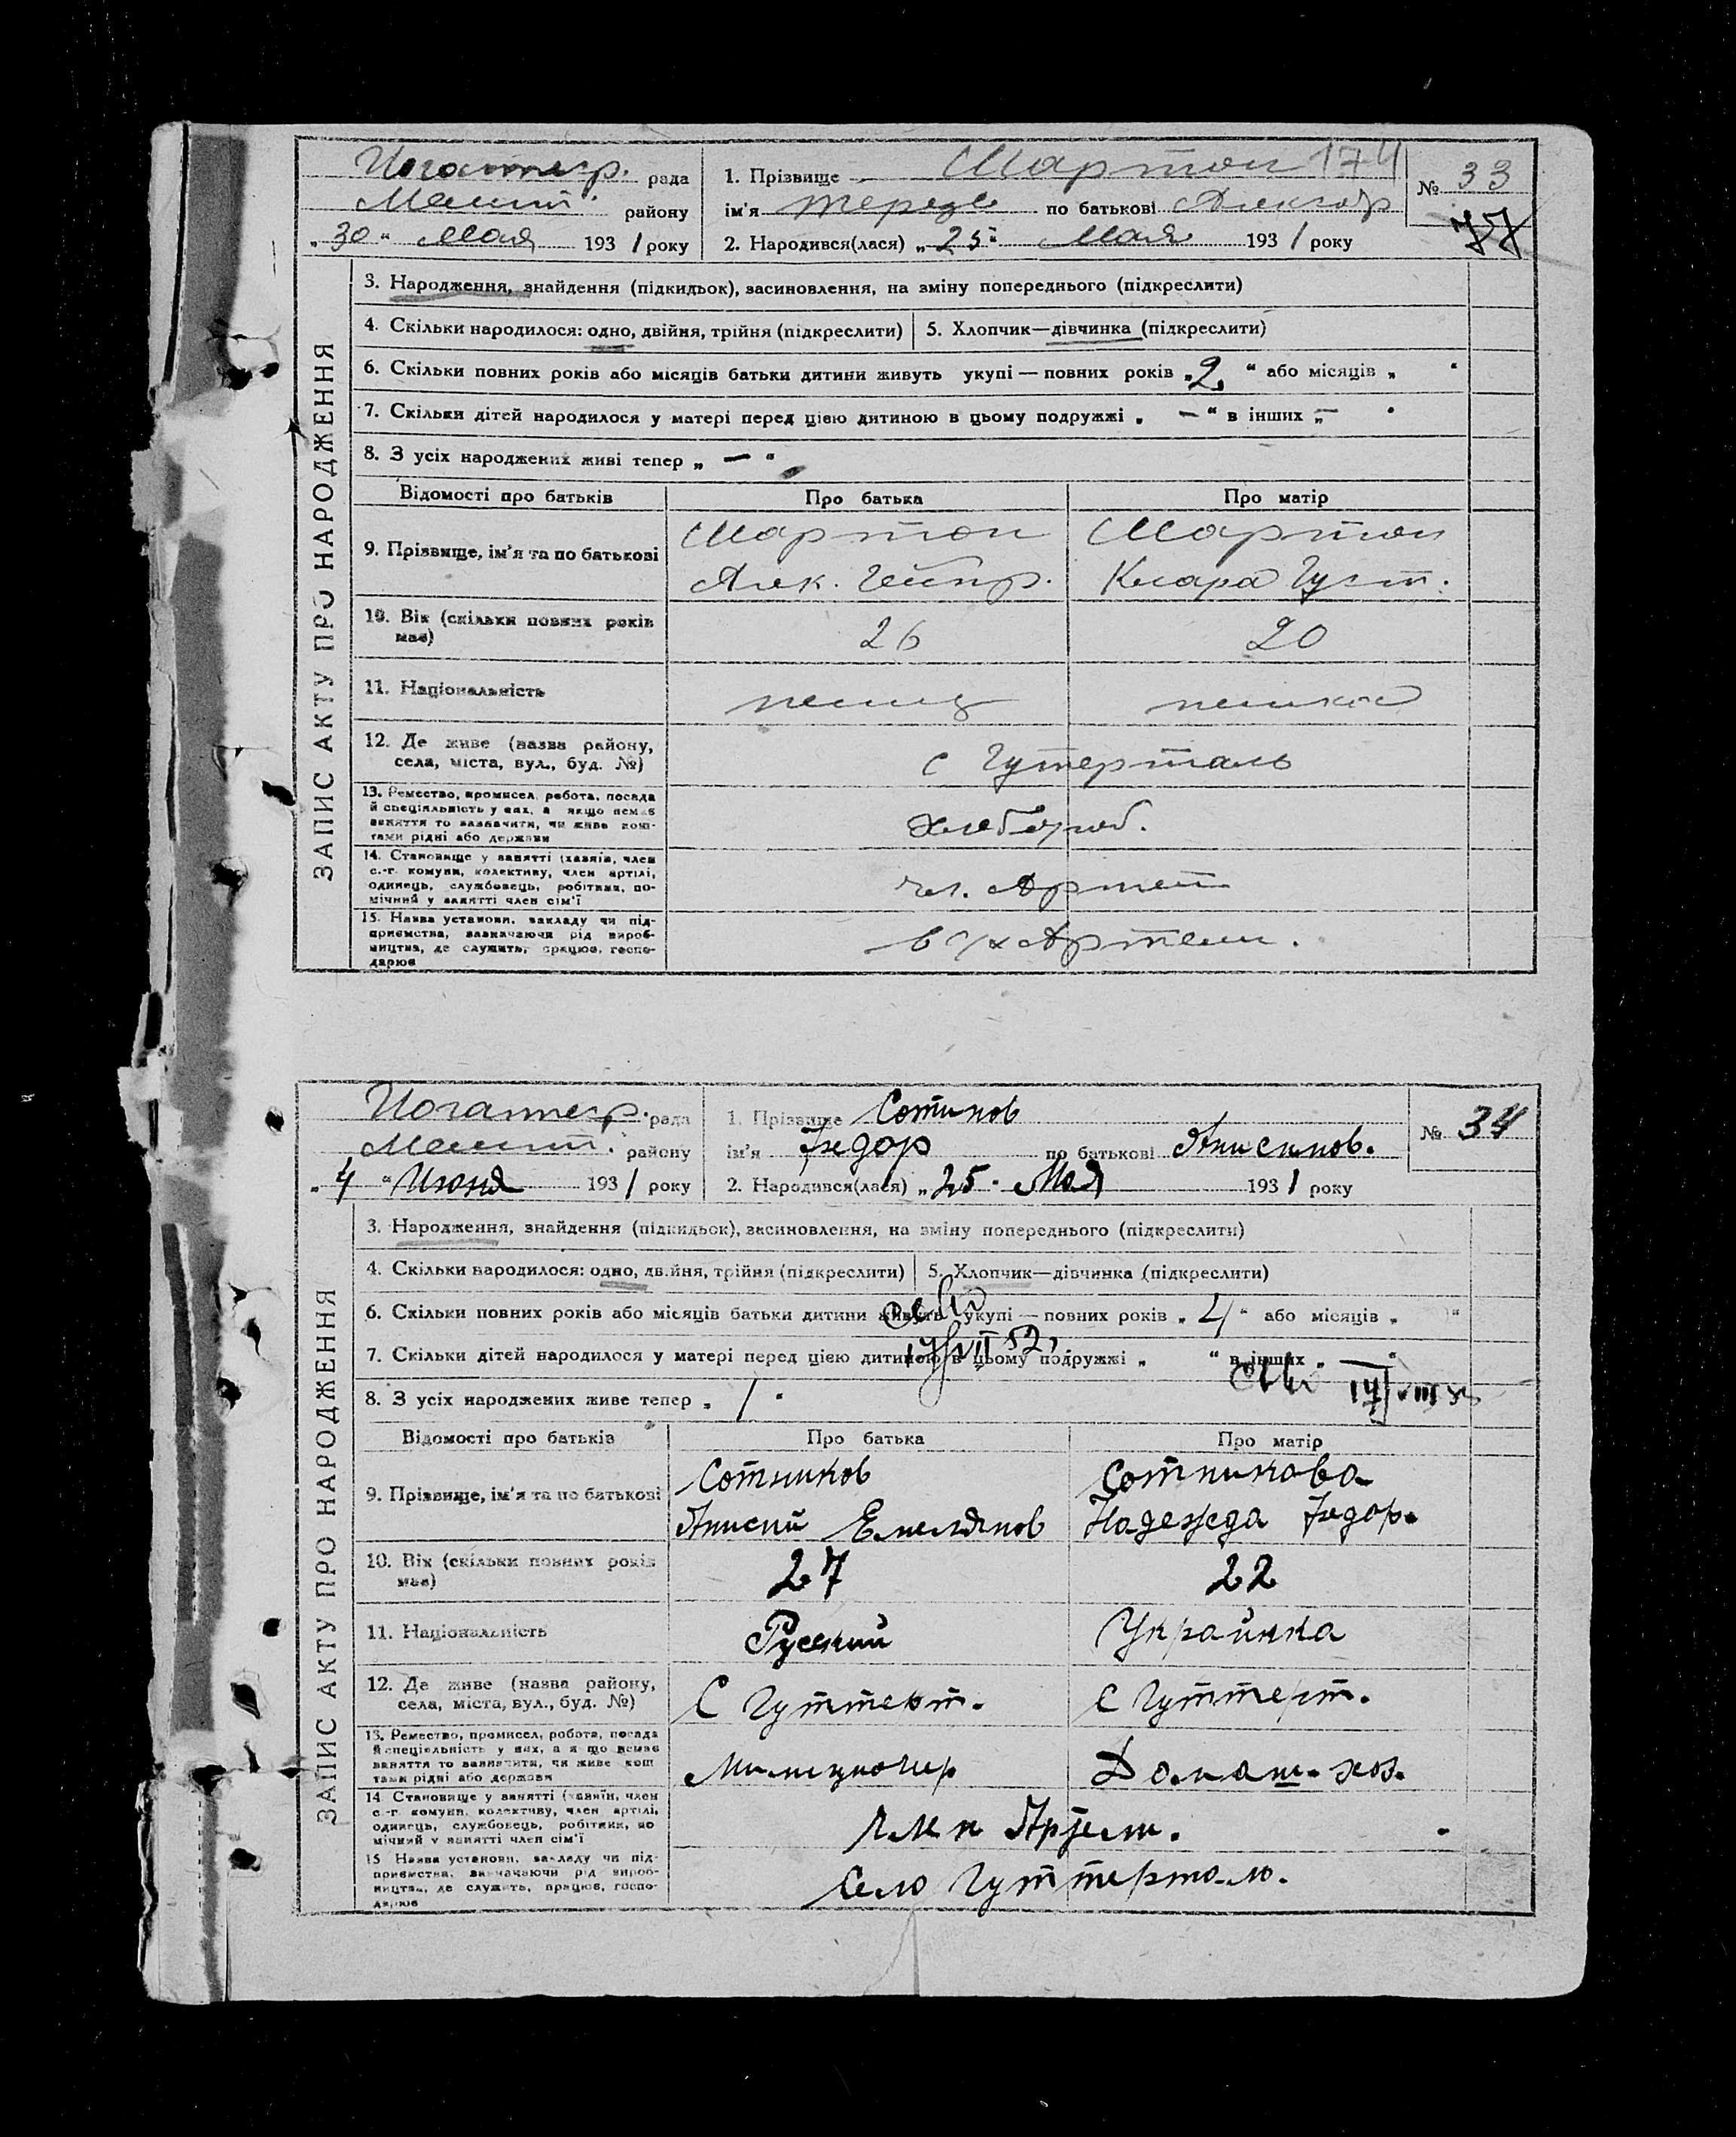 рада
району
„ 30 “ Мая 193 1 року
1. Прізвище Мартон 174
ім'я Терезе по батькові Александр
2. Народився(лася) „ 25 “ Мая 193 1 року
№ 33
77
ЗАПИС АКТУ ПРО НАРОДЖЕННЯ
3. Народження, знайдення (підкидьок), засиновлення, на зміну попереднього (підкреслити)
4. Скільки народилося: одно, двійня, трійня (підкреслити)
5. Хлопчик—дівчинка (підкреслити)
6. Скільки повних років або місяців батьки дитини живуть укупі — повних років „ 2 “ або місяців „ “
7. Скільки дітей народилося у матері перед цією дитиною в цьому подружжі „ — “ в інших „ —
8. З усіх народжених живі тепер „ — “
Відомості про батьків
Про батька
Про матір
9. Прізвище, ім'я та по батькові
Мартон
Алек.
Мартон
Клара Густ.
10. Вік (скільки повних років
має)
26
20
11. Національність
немец
немка
12. Де живе (назва району,
села, міста, вул., буд. №)
с Гутерталь
13. Ремество, промисел, робота, посада
й спеціяльність у них, а якщо немає
заняття то зазначити, чи живе кош-
тами рідні або держави
хлебороб.
14. Становище у занятті (хазяїн, член
с.-г. комуни, колективу, член артілі,
одинець, службовець, робітник, по-
мічний у занятті член сім'ї
чл. Артели
15. Назва установи, закладу чи під-
приємства, зазначаючи рід вироб-
ництва, де служить, працює, госпо-
дарює
в с/х Артели.
рада
району
„ 4 “ Июня 193 1 року
1. Прізвище Сотников
ім'я Федор по батькові Анисимов.
2. Народився(лася) „ 25 “ Мая 193 1 року
№ 34
ЗАПИС АКТУ ПРО НАРОДЖЕННЯ
3. Народження, знайдення (підкидьок), засиновлення, на зміну попереднього (підкреслити)
4. Скільки народилося: одно, двійня, трійня (підкреслити)
5. Хлопчик—дівчинка (підкреслити)
6. Скільки повних років або місяців батьки дитини живуть укупі — повних років „ 4 “ або місяців „ “
7. Скільки дітей народилося у матері перед цією дитиною в цьому подружжі „ “ в інших „ — “
8. З усіх народжених живе тепер „ 1 “
Відомості про батьків
Про батька
Про матір
9. Прізвище, ім'я та по батькові
Сотников
Анисий Емельянов
Сотникова
Надежда Федор.
10. Вік (скільки повних років
має)
27
22
11. Національність
Руский
Украинка
12. Де живе (назва району,
села, міста, вул., буд. №)
С Гуттерт.
С Гуттерт.
13. Ремество, промисел, робота, посада
й спеціяльність у них, а якщо немає
заняття то зазначити, чи живе кош
тами рідні або держави
Милиционер
Домаш. хоз.
14 Становище у занятті (хазяїн, член
с.-г. комуни, колективу, член артілі,
одинець, службовець, робітник, по
мічний у занятті член сім'ї
член Артели.
15 Назва установи, закладу чи під-
приємства, зазначаючи рід вироб-
ництва, де служить, працює, госпо-
дарює
Село Гуттерталь.